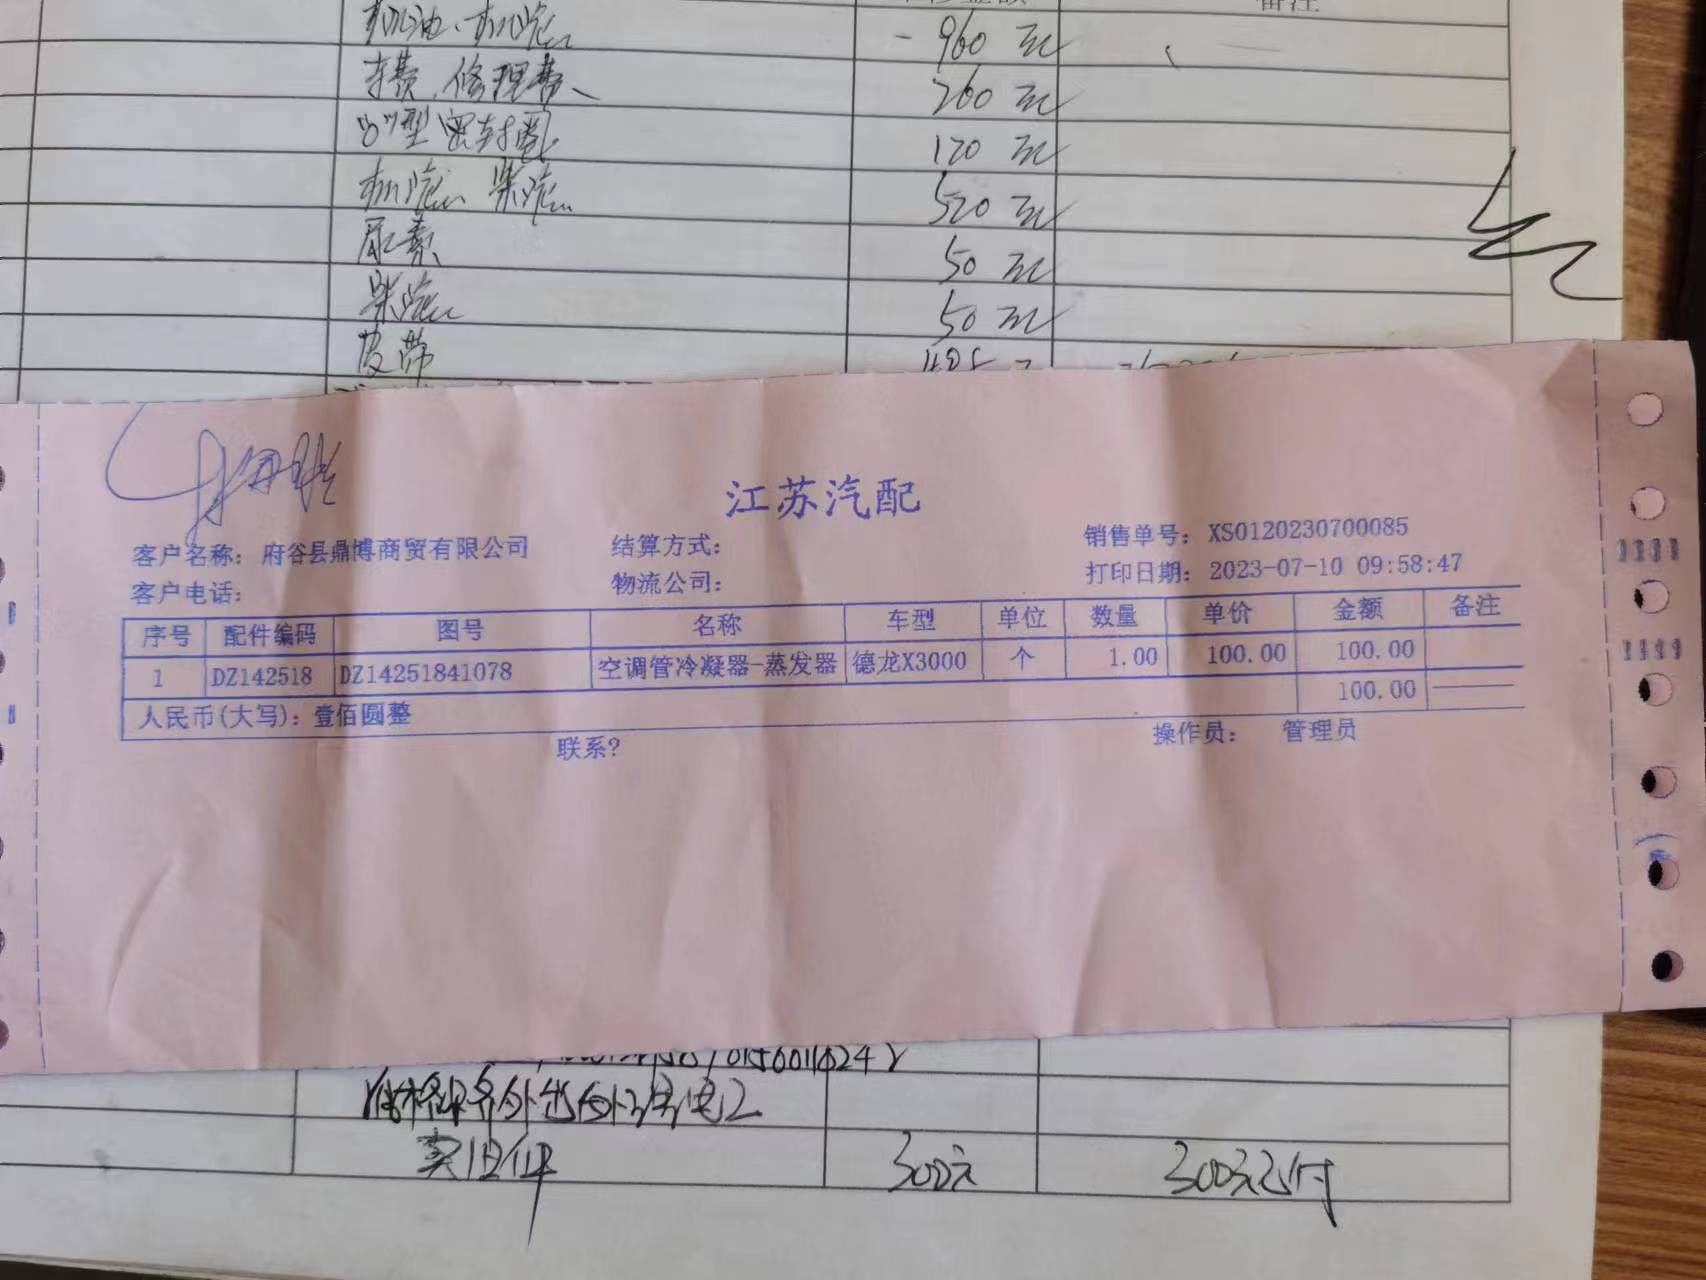 备注
机油、机滤 960元
车费、修理费、 260元
"O"型密封圈 120元
机滤、柴滤 520元
尿素 50元
柴滤 50元
皮带
江苏汽配
客户名称: 府谷县鼎博商贸有限公司 结算方式: 销售单号: XS0120230700085
客户电话: 物流公司: 打印日期: 2023-07-10 09:58:47
序号 配件编码 图号 名称 车型 单位 数量 单价 金额 备注
1 DZ142518 DZ14251841078 空调管冷凝器-蒸发器 德龙X3000 个 1.00 100.00 100.00
100.00
人民币(大写): 壹佰圆整
联系? 操作员: 管理员
300元 300元已付